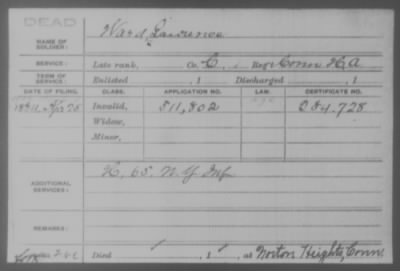 DEAD
NAME OF SOLDIER: Ward, Lawrence
SERVICE: Late rank, Co. C, 1 Reg't Conn H A
TERM OF SERVICE: Enlisted , 1 Discharged , 1
DATE OF FILING. CLASS. APPLICATION NO. LAW. CERTIFICATE NO.
Invalid, 511,802 284.728
Widow,
Minor,
ADDITIONAL SERVICES: K, 65. N.Y. Inf
REMARKS:
Died , 1 , at Noroton Heights, Conn.